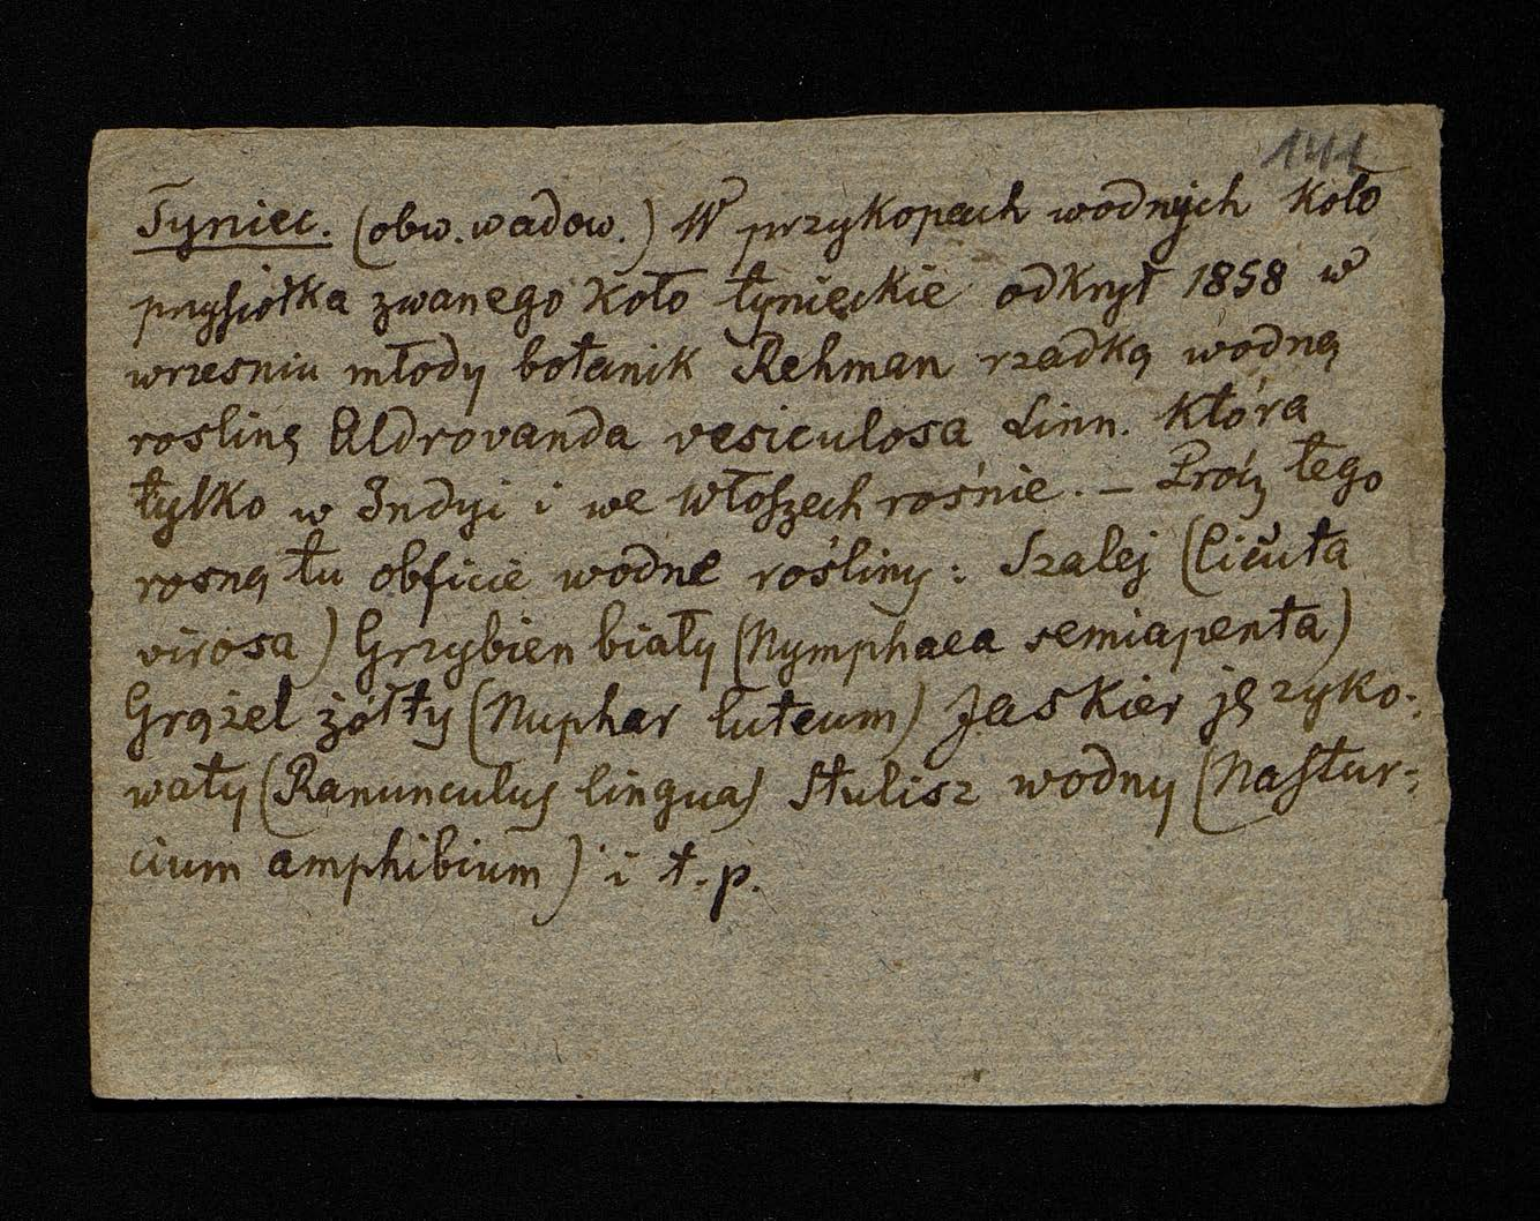 141
Tyniec. (obw. wadow.) W przykopach wodnych koło
przysiołka zwanego Koło tynieckie odkrył 1858 w
wrzesniu młody botanik Rehman rzadką wodną
roslinę Aldrovanda vesiculosa Linn. która
tylko w Indyi i we Włoszech rośnie. – Prócz tego
rosną tu obficie wodne rośliny: Szalej (Cicuta
virosa) Grzybien biały (Nymphaea semiapenta)
Grążel żółty (Nuphar luteum) Jaskier języko-
waty (Ranunculus lingua) Stulisz wodny (Nastur-
cium amphibium) i t. p.